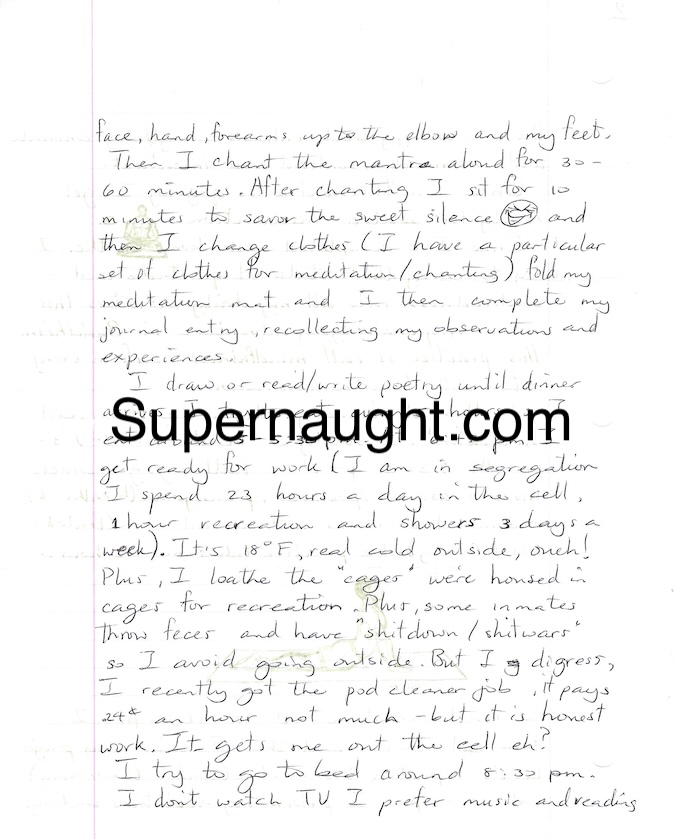 face, hand, forearms up to the elbow and my feet.
Then I chant the mantra aloud for 30-
60 minutes. After chanting I sit for 10
minutes to savor the sweet silence and
then I change clothes (I have a particular
set of clothes for meditation/chanting) fold my
meditation mat and I then complete my
journal entry, recollecting my observations and
experiences.
I draw or read/write poetry until dinner
Supernaught.com
get ready for work (I am in segregation
I spend 23 hours a day in the cell,
1 hour recreation and showers 3 days a
week). It's 18°F, real cold outside, ouch!
Plus, I loathe the "cages" we're housed in
cages for recreation. Plus, some inmates
throw feces and have "shitdown/shitwars"
so I avoid going outside. But I digress,
I recently got the pod cleaner job, it pays
.24¢ an hour not much - but it is honest
work. It gets me out the cell eh?
I try to go to bed around 8:30 pm.
I don't watch TV I prefer music and reading